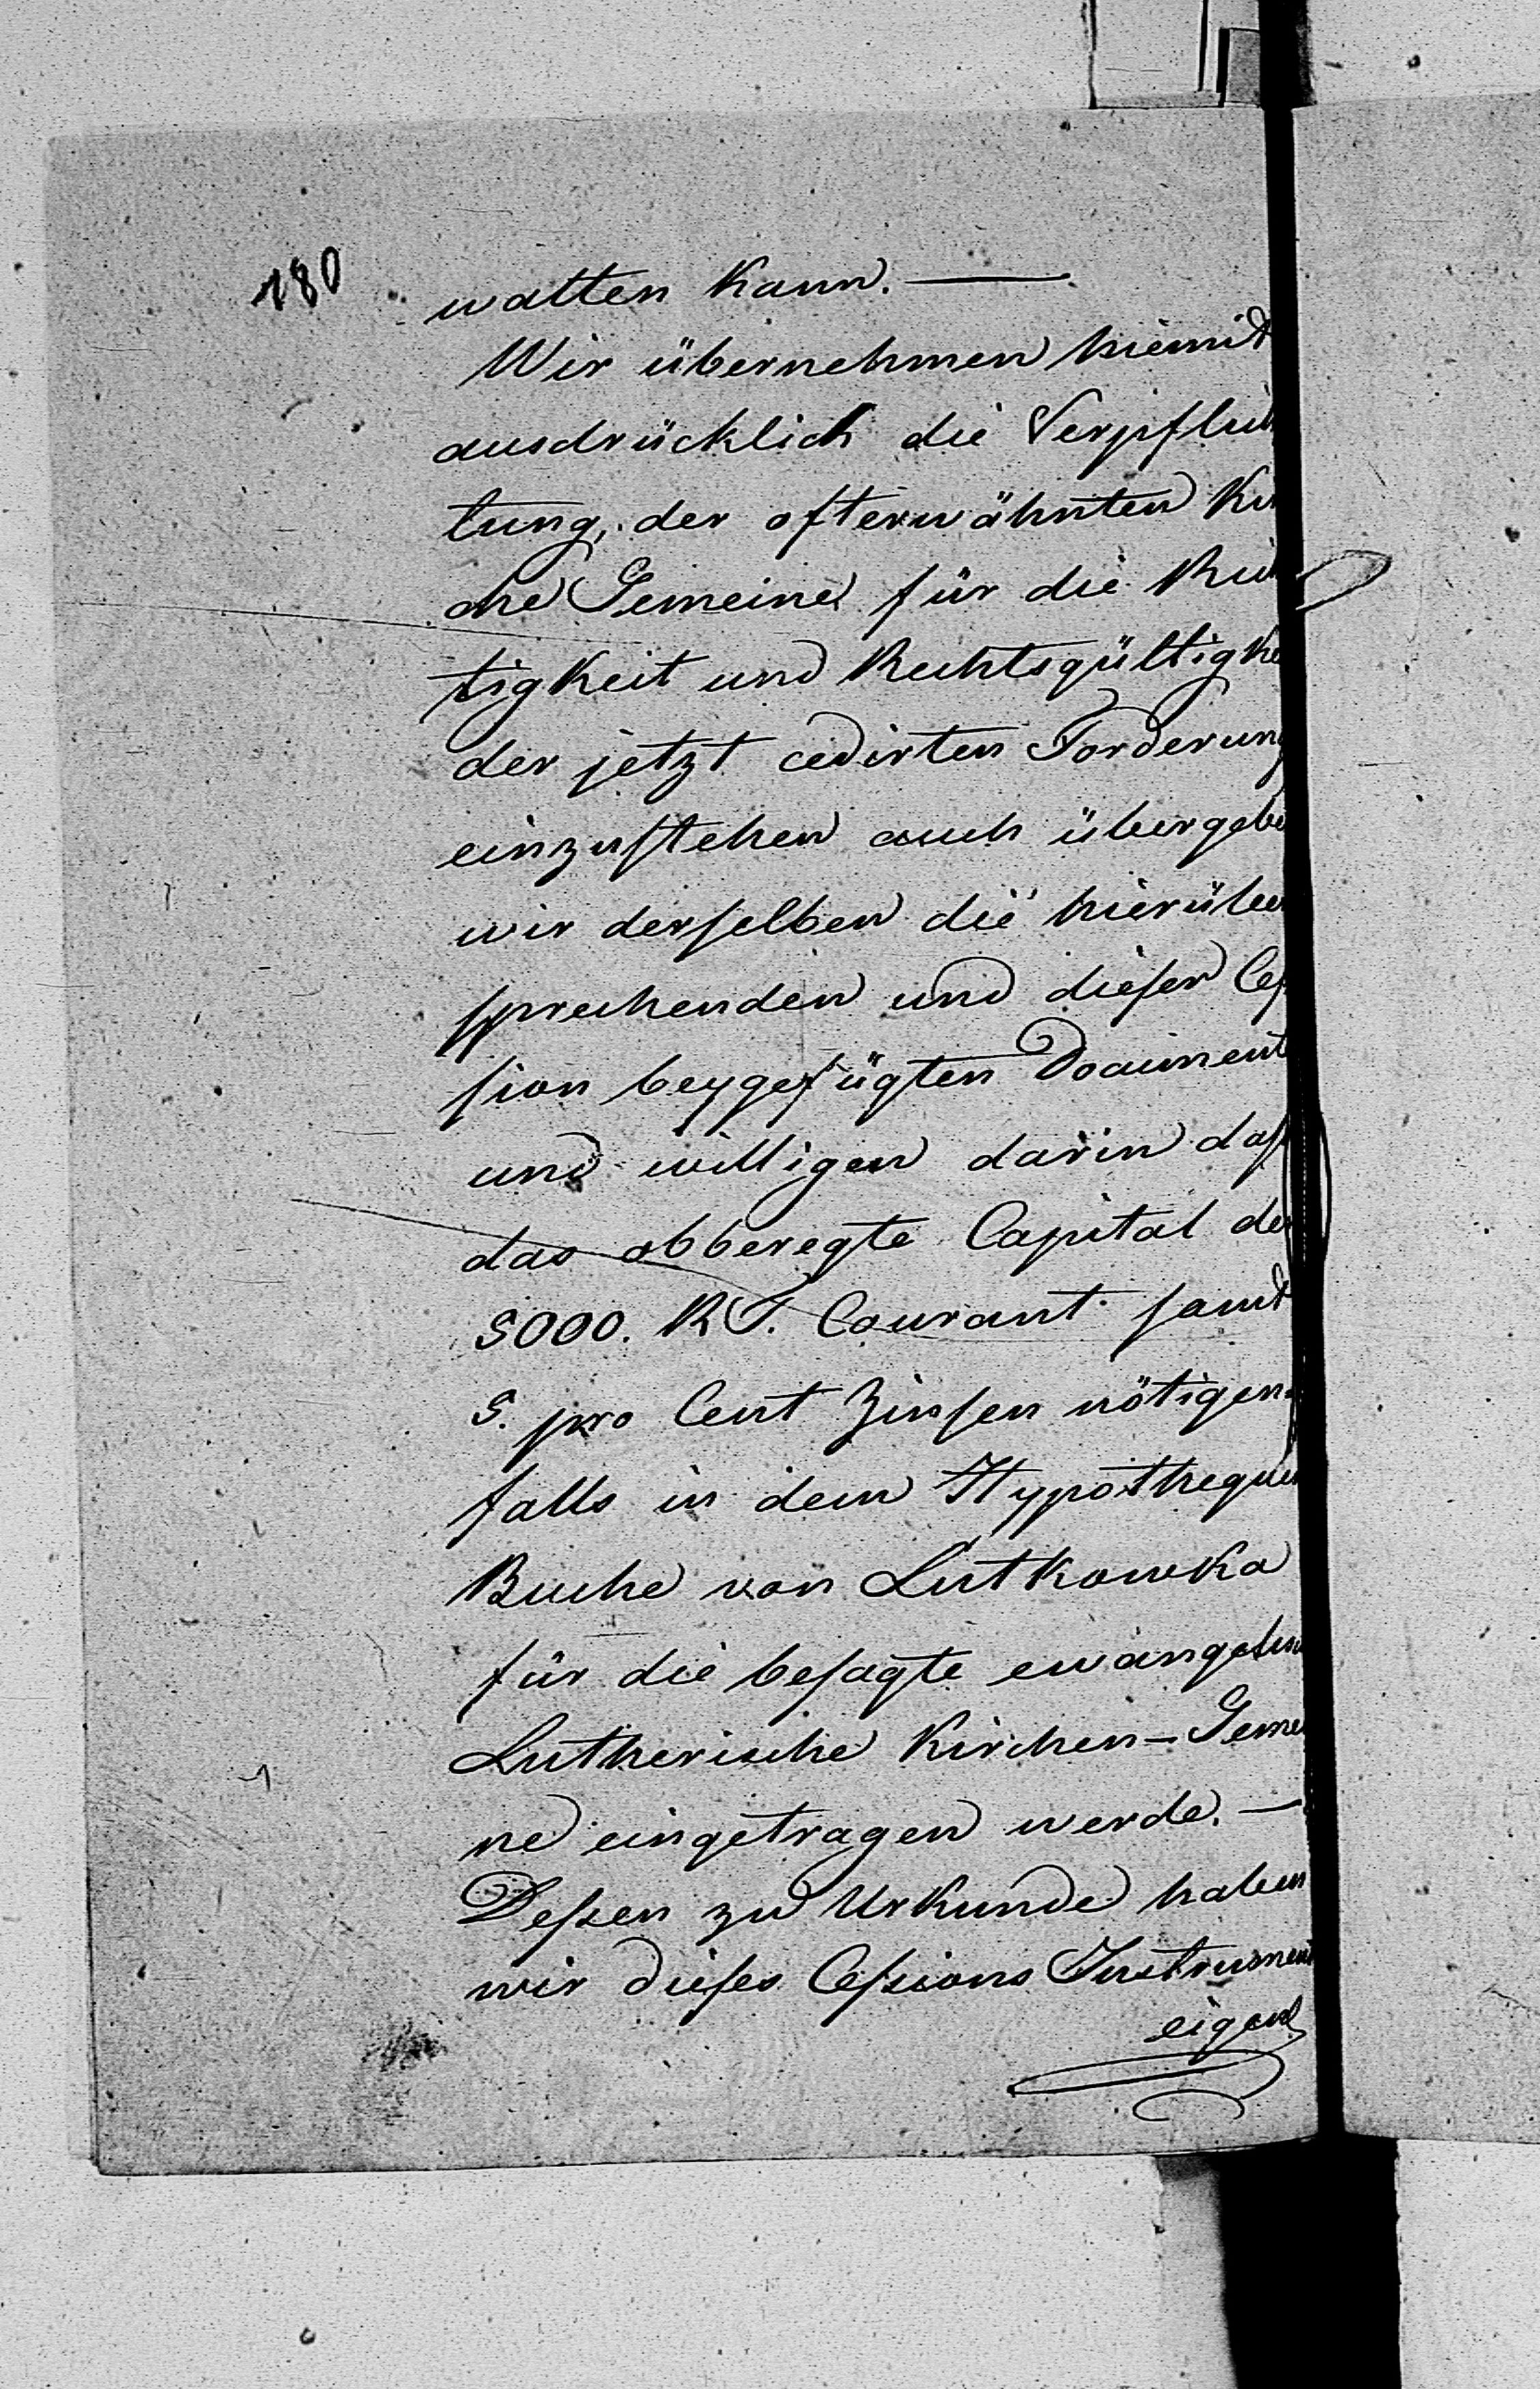 180
walten kann. —
Wir übernehmen hiemit
ausdrücklich die Verpflich
tung, der ofterwähnten Kir
che Gemeine für die Rich
tigkeit und Rechtsgültigke
der jetzt cedirten Forderung
einzustehen auch übergebe
wir derselben die hierüber
sprechenden und dieser Ces
sion beygefügten Document
und willigen darin daß
das obberegte Capital der
5000. RT. Courant samt
5. pro Cent Zinsen nötigen-
falls in dem Hypotheque
Buche von Lutkowka
für die besagte evangelis
Lutherische Kirchen-Gemei
ne eingetragen werde. —
Deßen zu Urkunde haben
wir dieses Ceßions Instrument
eigen